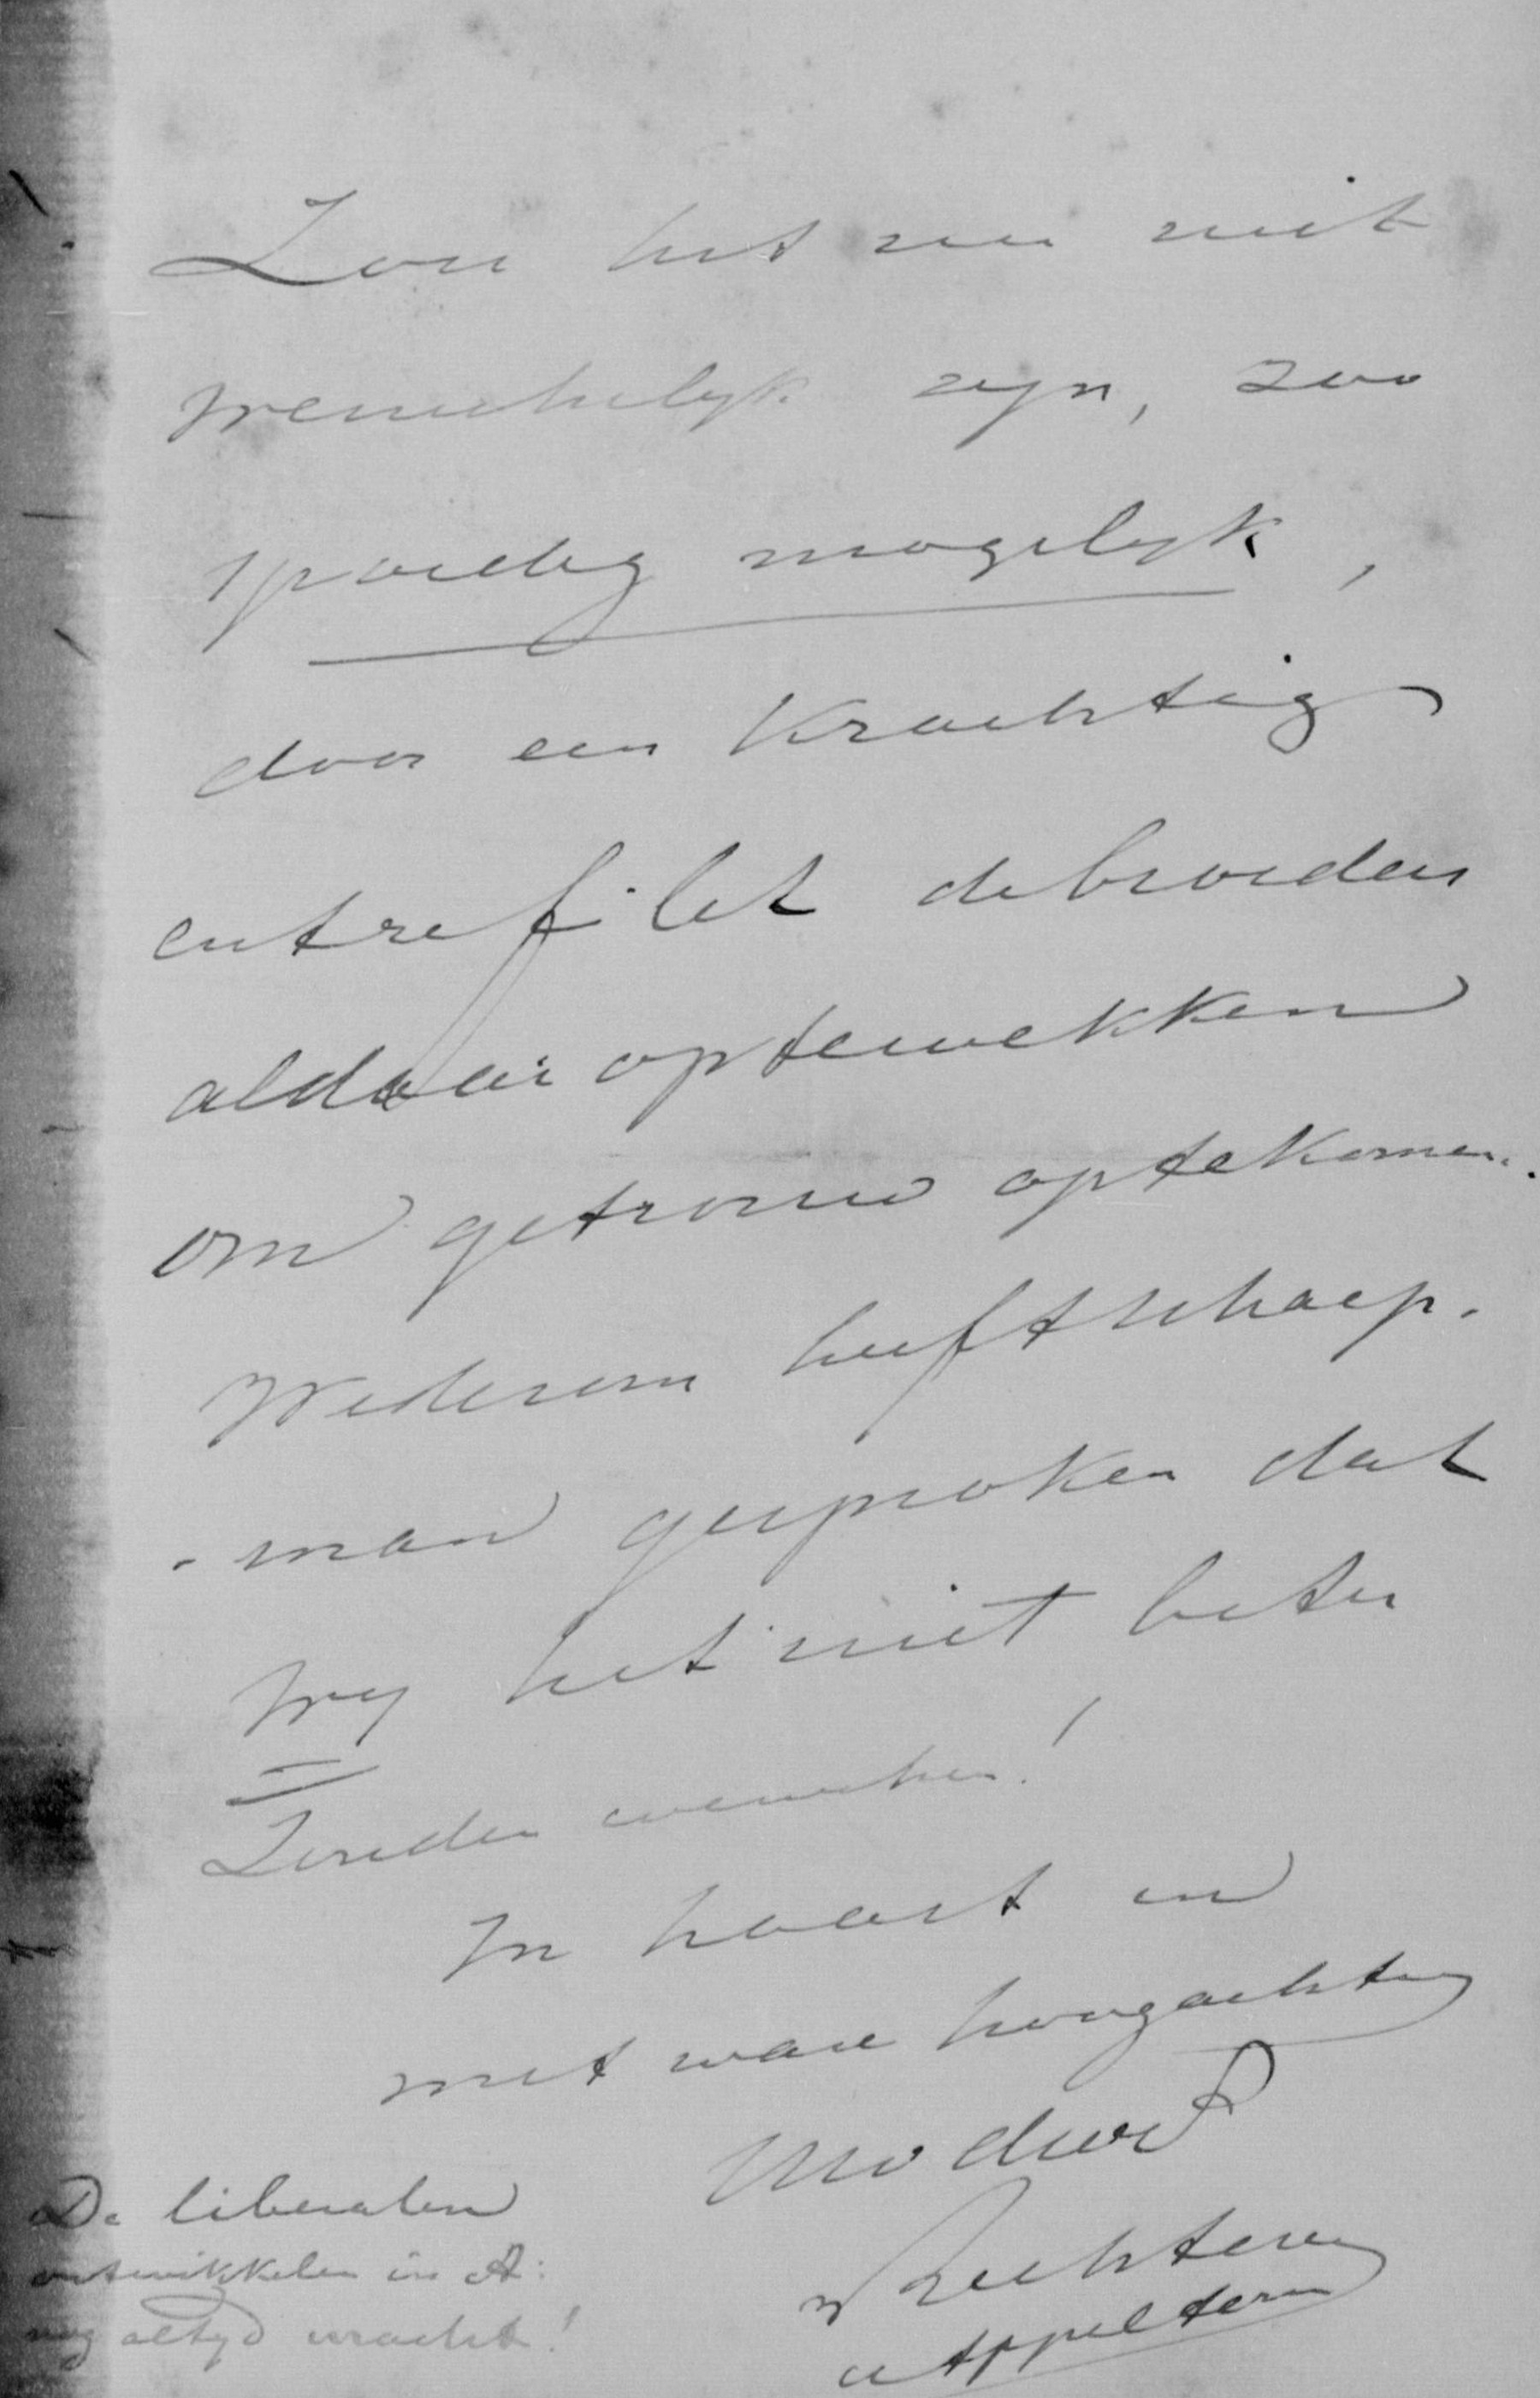 Zou het nu niet
wenschelyk zyn, zoo
spoedig mogelyk,
door een Krachtig
entrefilet de broeders
aldaar optewekken
om getrouw optekomen.
Wederom heeft schaep-
-man gesproken dat
wy het niet beter
Zouden wenschen!
In haast en
met ware hoogachting
Uw dw d
v Rechteren
Appeltern
De liberalen
ontwikkelen in A:
nog altyd kracht!